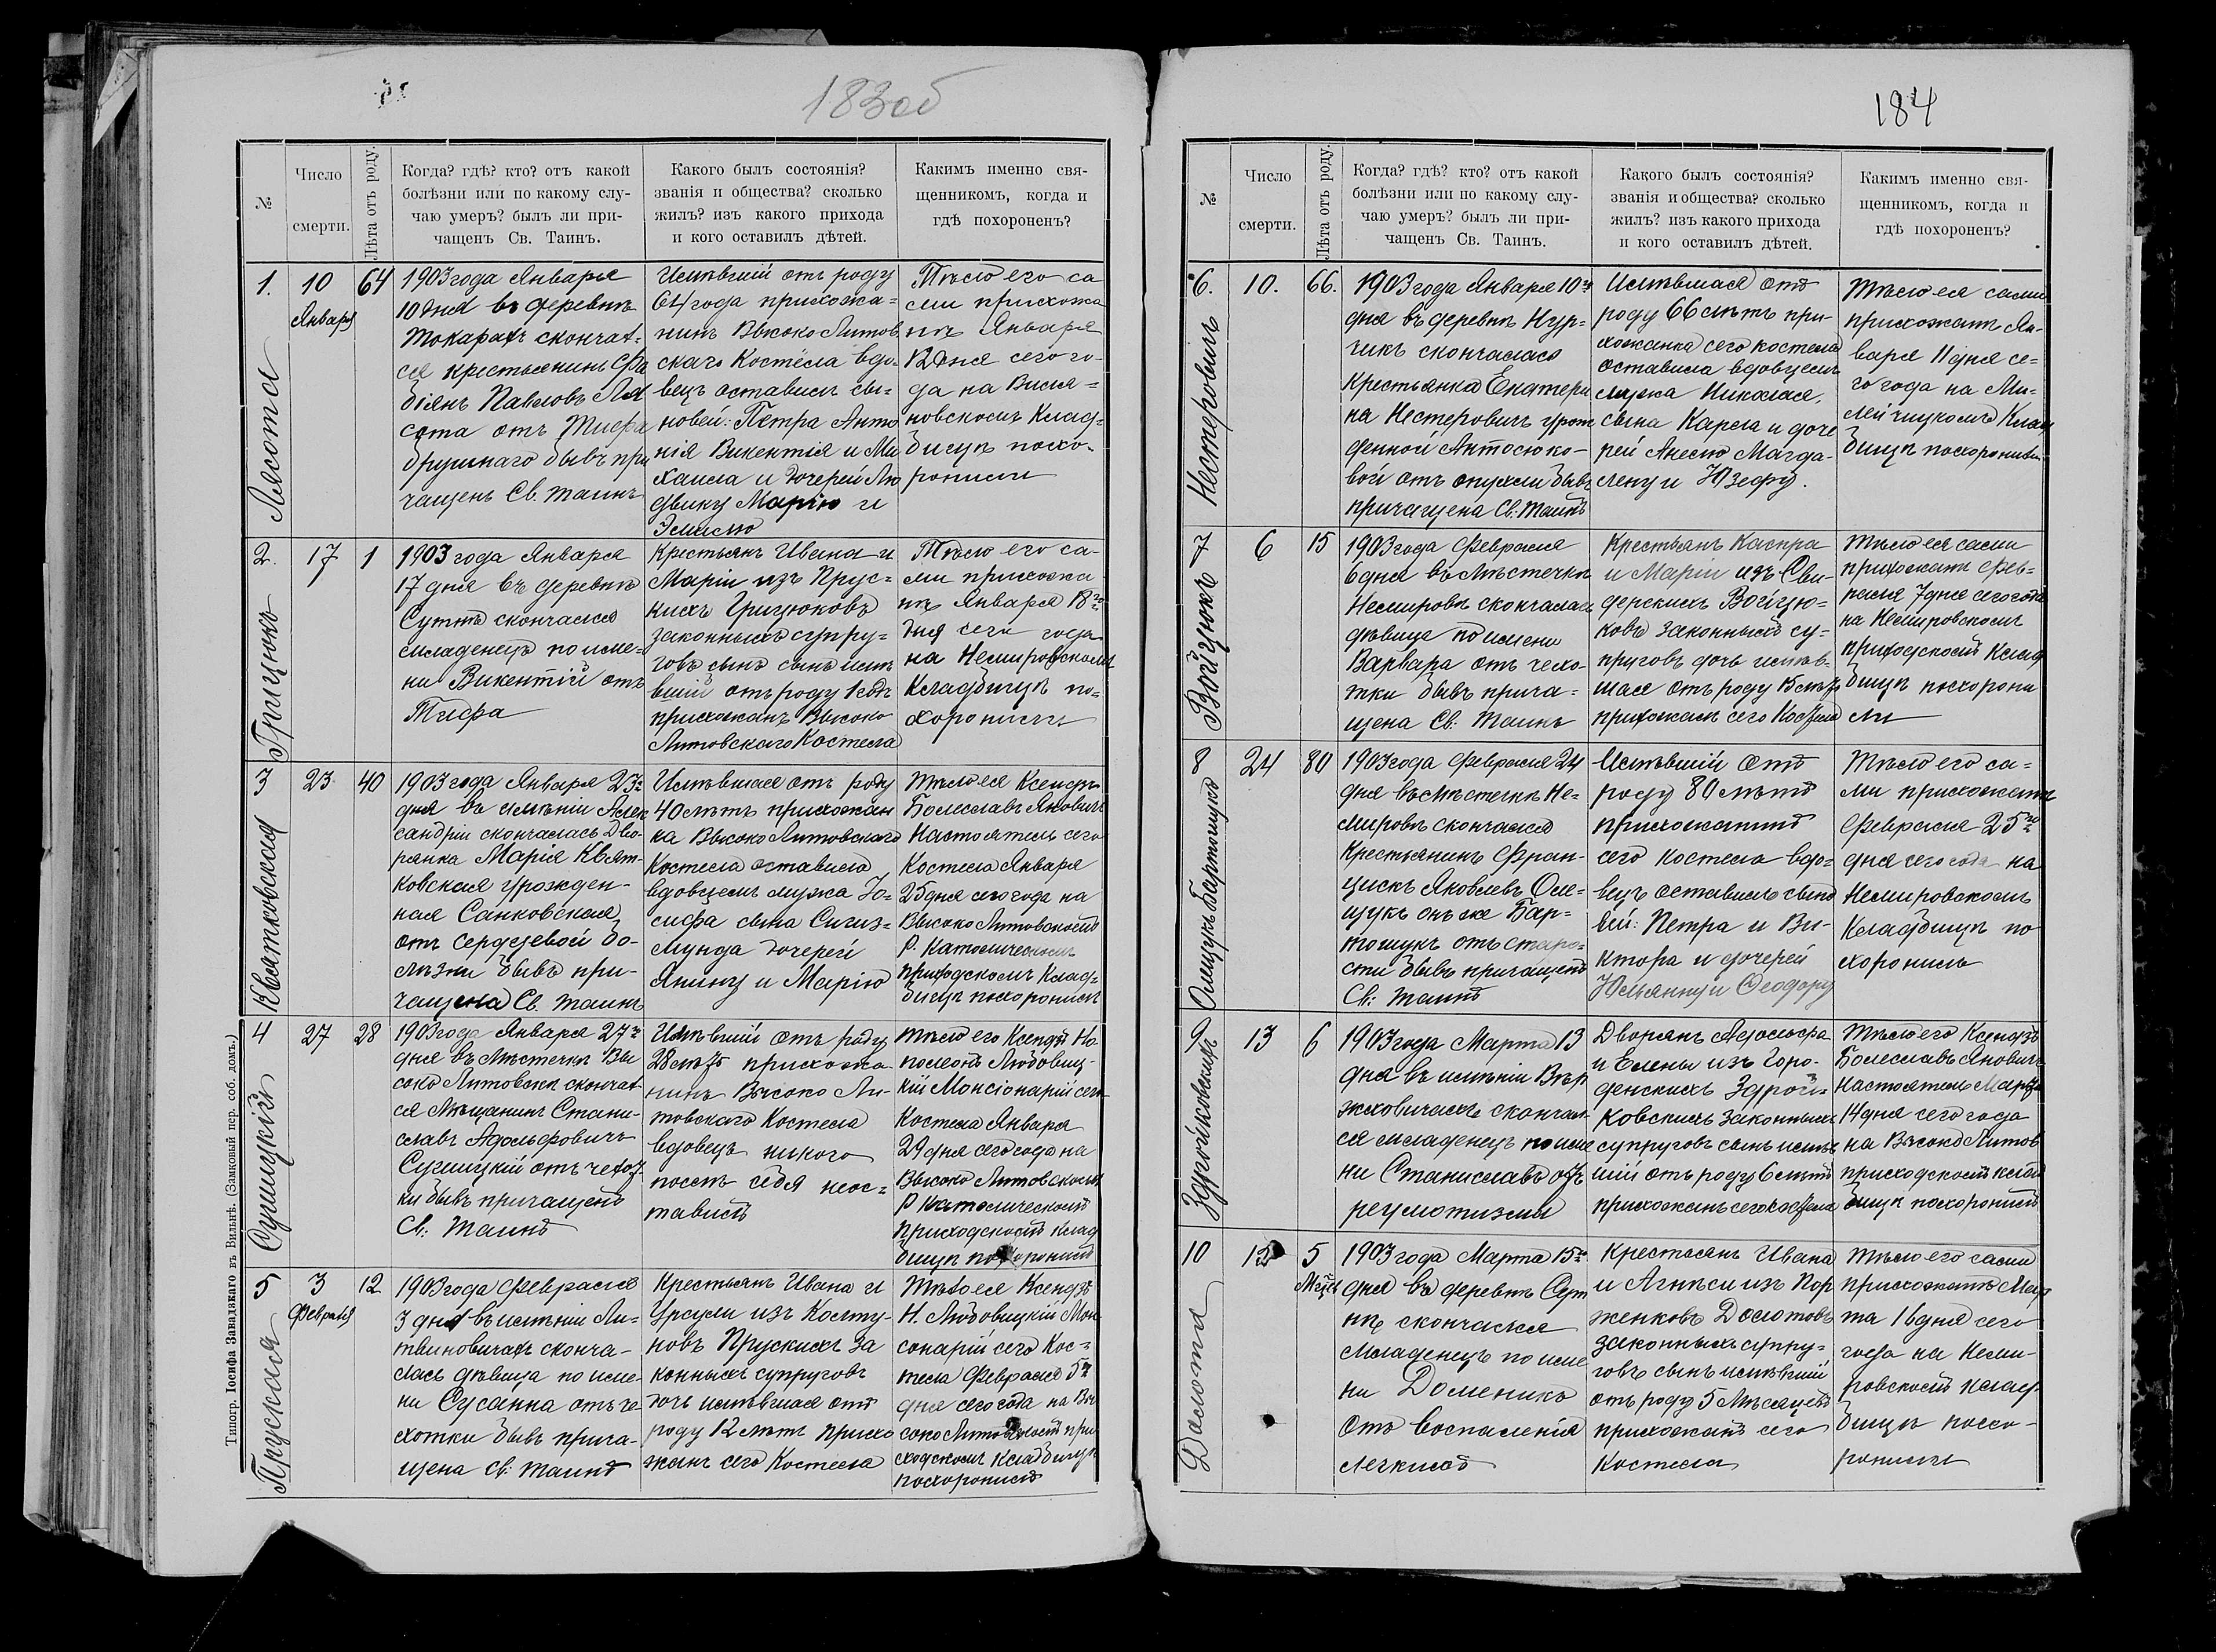 183 об
№
Число
смерти.
Лѣта отъ роду.
Когда? гдѣ? кто? отъ какой
болѣзни или по какому слу-
чаю умеръ? былъ ли при-
чащенъ Св. Таинъ.
Какого былъ состоянія?
званія и общества? сколько
жилъ? изъ какого прихода
и кого оставилъ дѣтей.
Какимъ именно свя-
щенникомъ, когда и
гдѣ похороненъ?
1.
Лясота
10
Января
64
1903 года Января
10 дня въ деревнѣ
Токаряхъ скончал-
ся крестьянинъ Фа
біянъ Павловъ Ля
сота отъ Тифа
брушнаго бывъ при
чащенъ Св. таинъ
Имѣвшій отъ роду
64 года прихожа-
нинъ Высоко Литов
скаго Костёла вдо-
вецъ оставилъ сы-
новей: Петра Анто
нія Викентія и Ми
хаила и дочерей Лю
двику Марію и
Эмилію
Тѣло его са
ми прихожа
нѣ Января
12 дня сего го-
да на Вилья-
новскомъ Клад-
бищѣ похо-
ронили
2.
Грицюкъ
17
1
1903 года Января
17 дня въ деревнѣ
Сутнѣ скончался
младенецъ по име-
ни Викентій отъ
Тифа
Крестьянъ Ивана и
Маріи изъ Прус-
кихъ Грицюковъ
законныхъ супру-
говъ сынъ сынъ имѣ
вшій отъ роду 1 годъ
прихожанъ Высоко
Литовскаго Костела
Тѣло его са-
ми прихожа
нѣ Января 18го
дня сего года
на Немировскомъ
Кладбищѣ по-
хоронили
3
Квятковская
23
40
1903 года Января 23го
дня въ имѣніи Алек
сандріи скончалась Дво-
рянка Марія Квят-
ковская урожден-
ная Санковская
отъ сердцевой бо-
лѣзни бывъ при-
чащена Св. таинъ
Имѣвшая отъ роду
40 лѣтъ прихожан
ка Высоко Литовскаго
Костела оставила
вдовцемъ мужа Іо-
сифа сына Сигиз-
мунда дочерей
Янину и Марію
Тѣло ея Ксендзъ
Болеславъ Яновичъ
Настоятель сего
Костела Января
25 дня сего года на
Высоко Литовскомъ
Р. Католическомъ
приходскомъ Клад-
бищѣ похоронилъ
4
Сушицкій
27
28
1903 года Января 27го
дня въ Мѣстечкѣ Вы
соко Литовскѣ скончал
ся Мѣщанинъ Стани-
славъ Адольфовичъ
Сушицкій отъ чехот
ки бывъ причащенъ
Св: Таинъ
Имѣвшій отъ роду
28 лѣтъ прихожа
нинъ Высоко Ли-
товскаго Костела
вдовецъ никого
послѣ себя неос-
тавилъ
Тѣло его Ксендзъ На
полеонъ Любовиц-
кій Монсіонарій сего
Костела Января
29 дня сего года на
Высоко Литовскомъ
Р Католическомъ
Приходскомъ Клад
бищѣ похоронилъ
5
Прускаля
3
Февраля
12
1903 года Февраля
3 дня въ имѣніи Ли-
твиновичахъ сконча-
лась дѣвица по име-
ни Сусанна отъ че-
хотки бывъ прича-
щена св: таинъ
Крестьянъ Ивана и
Урсули изъ Колту-
новъ Прускихъ за
конныхъ супруговъ
дочь имѣвшая отъ
роду 12 лѣтъ прихо
жанъ сего Костела
Тѣло ея Ксендзъ
Н. Любовицкій Мон
сонарій сего Кос-
тела Февраля 5го
дня сего года на Вы
соко Литовскомъ при
ходскомъ Кладбищѣ
похоронилъ
Типогр. Іосифа Завадзкаго въ Вильнѣ. (Замковый пер. соб. домъ.)
184
№
Число
смерти.
Лѣта отъ роду.
Когда? гдѣ? кто? отъ какой
болѣзни или по какому слу-
чаю умеръ? былъ ли при-
чащенъ Св. Таинъ.
Какого былъ состоянія?
званія и общества? сколько
жилъ? изъ какого прихода
и кого оставилъ дѣтей.
Какимъ именно свя-
щенникомъ, когда и
гдѣ похороненъ?
6.
Нестеровичъ
10.
66.
1903 года Января 10го
дня въ деревнѣ Нур-
чикъ скончалась
Крестьянка Екатери
на Нестеровичъ урож
денной Антосюко-
вой отъ опухли бывъ
причащена Св: Таинъ
Имѣвшая отъ
роду 66 лѣтъ при-
хожанка сего костела
оставила вдовцемъ
мужа Николая,
сына Карла и доче
рей Анелю Магда-
лену и Юзефу.
Тѣло ея сами
прихожанѣ Ян-
варя 11 дня се-
го года на Ми-
лейчицкомъ Клад
бищѣ похоронили
7
Войцюкъ
6
15
1903 года Февраля
6 дня въ Мѣстечкѣ
Немировѣ скончалась
дѣвица по имени
Варвара отъ чехо-
тки бывъ прича-
щена Св: Таинъ
Крестьянъ Каспра
и Маріи изъ Сви-
дерскихъ Войцю-
ковъ законныхъ су-
пруговъ дочь имѣв-
шая отъ роду 15 лѣтъ
прихожанъ сего Костела
Тѣло ея сами
прихожанѣ Фев-
раля 7 дня сего года
на Немировскомъ
приходскомъ Клад
бищѣ похорони
ли
8
Олещукъ Бартошукъ
24
80
1903 года Февраля 24
дня въ Мѣстечкѣ Не-
мировѣ скончался
Крестьянинъ Фран-
цискъ Яковлевъ Оле-
щукъ онъ же Бар-
тошукъ отъ старо-
сти бывъ причащенъ
Св: Таинъ
Имѣвшій отъ
роду 80 лѣтъ
прихожанинъ
сего костела вдо-
вецъ оставилъ сыно
вей: Петра и Ви-
ктора и дочерей
Юльянну и Феодору
Тѣло его са-
ми прихожанѣ
Февраля 25го
дня сего года на
Немировскомъ
Кладбищѣ по
хоронилъ
9
Здройковскій
13
6
1903 года Марта 13
дня въ имѣніи Вер
жховичахъ скончал
ся младенецъ по име
ни Станиславъ отъ
реумотизмы
Дворянъ Адольфа
и Елены изъ Горо-
денскихъ Здрой-
ковскихъ законныхъ
супруговъ сынъ имѣв
шій отъ роду 6 лѣтъ
прихожанъ сего костела
Тѣло его Ксендзъ
Болеславъ Яновичъ
Настоятель Марта
14 дня сего года
на Высоко Литов
приходскомъ клад
бищѣ похоронилъ
10
Долота
5
Мѣся
1903 года Марта 15го
дня въ деревнѣ Сут
нѣ скончался
Младенецъ по име
ни Доменикъ
Отъ воспаленія
легкихъ
Крестьянъ Ивана
и Агнѣси изъ Пор
женковъ Долотовъ
законныхъ супру-
говъ сынъ имѣвшій
отъ роду 5 Мѣсяцевъ
прихожанъ сего
Костела
Тѣло его сами
прихожанѣ Мар
та 16 дня сего
года на Неми-
ровскомъ клад-
бищѣ похо-
ронили